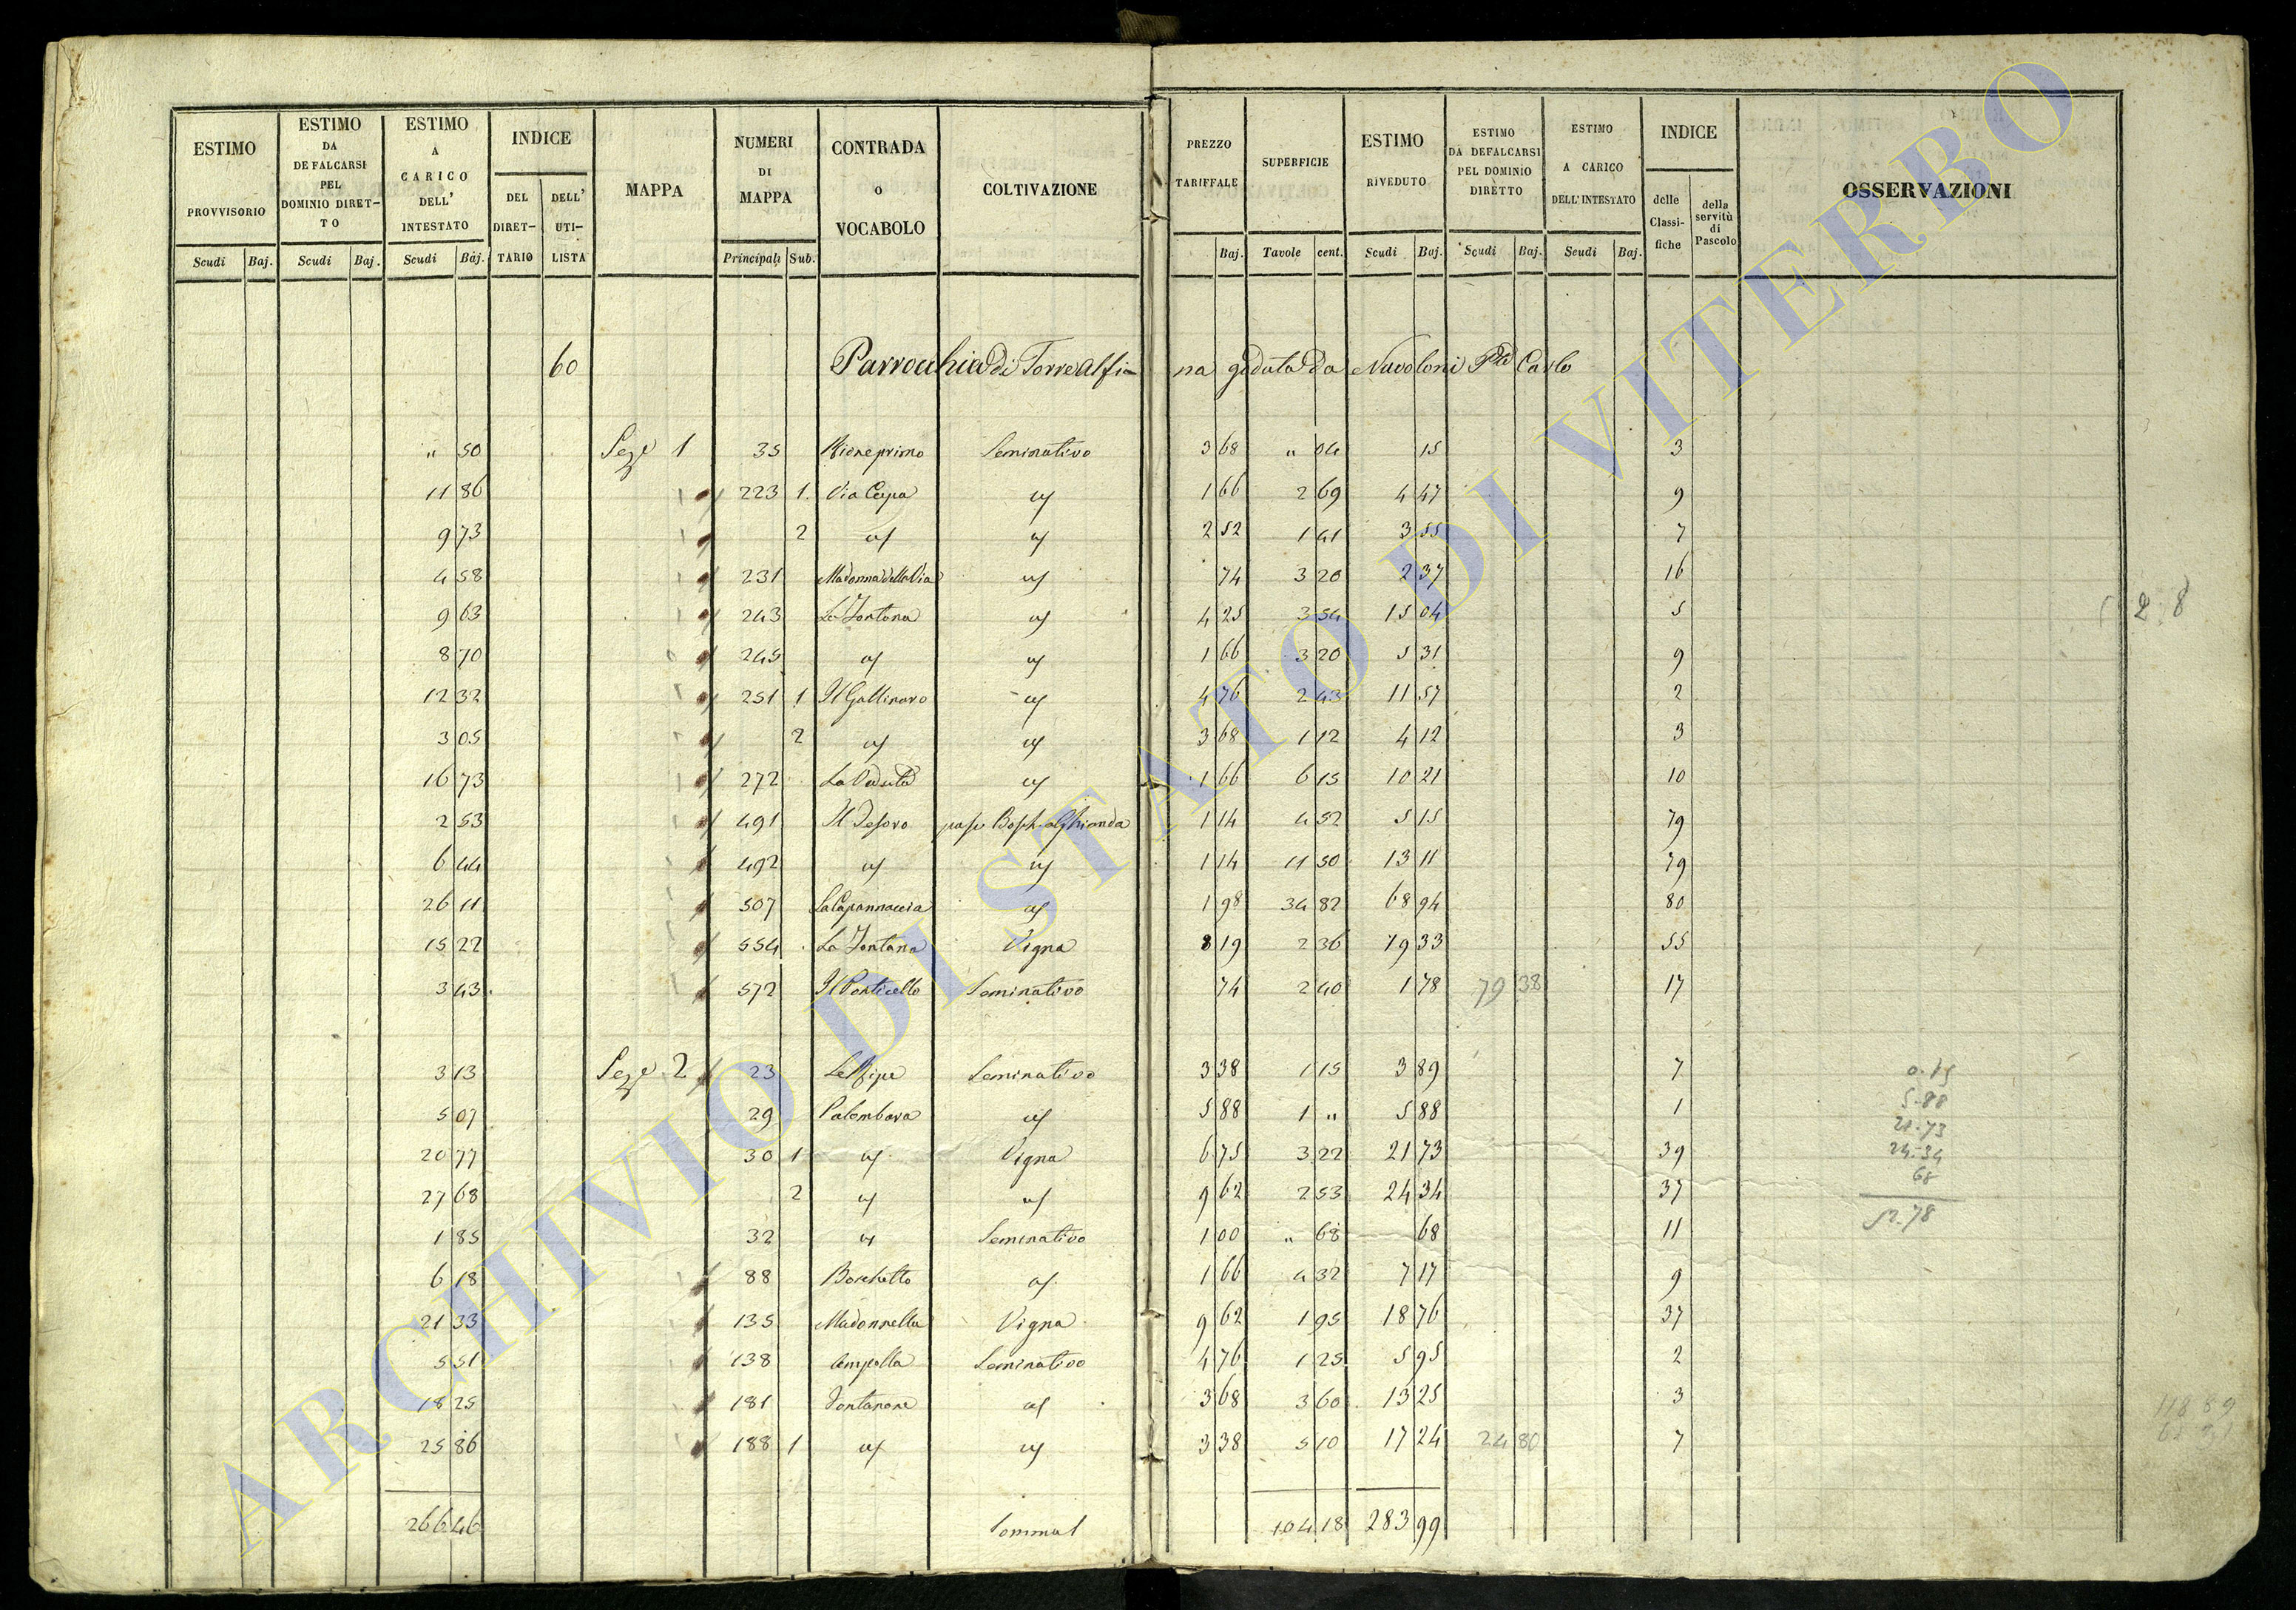 ESTIMO PROVVISORIO Scudi Baj.
ESTIMO DA DEFALCARSI PEL DOMINIO DIRET-TO Scudi Baj.
ESTIMO A CARICO DELL' INTESTATO Scudi Baj.
INDICE DEL DIRET-TARIO DELL' UTI-LISTA
MAPPA
NUMERI DI MAPPA Principali Sub.
CONTRADA o VOCABOLO
COLTIVAZIONE
PREZZO TARIFFALE Baj.
SUPERFICIE Tavole cent.
ESTIMO RIVEDUTO Scudi Baj.
ESTIMO DA DEFALCARSI PEL DOMINIO DIRETTO Scudi Baj.
ESTIMO A CARICO DELL'INTESTATO Scudi Baj.
INDICE delle Classi-fiche della servitù di Pascolo
OSSERVAZIONI
60 Parrochia di Torre Alfina goduta da Nuvoloni Carlo
" 50 Seze 1 35 Rione primo Seminativo 3 68 " 04 15 3
11 86 223 1 Via Cupa 1 66 2 69 4 47 9
9 73 2 2 52 1 41 3 55 7
4 58 231 Madonna della Via 74 3 20 2 37 16
9 63 243 La Fontana 4 25 3 54 15 04 5
8 70 245 1 66 3 20 5 31 9
12 32 251 1 Il Gallinaro 4 76 2 43 11 57 2
3 05 2 3 68 1 12 4 12 3
16 73 272 La 1 66 6 15 10 21 10
2 53 491 Il Tesoro 1 14 4 52 5 15 79
6 44 492 1 14 11 50 13 11 79
26 11 507 La Capannaccia 1 98 34 82 68 94 80
15 22 554 La Fontana Vigna 8 19 2 36 19 33 55
3 43 572 Il Ponticello Seminativo 74 2 40 1 78 79 38 17
3 13 Seze 2 23 Le Ripe Seminativo 3 38 1 15 3 89 7
5 07 29 Palombara 5 88 1 " 5 88 1
20 77 30 1 Vigna 6 75 3 22 21 73 39
27 68 2 9 62 2 53 24 34 37
1 85 32 Seminativo 1 00 " 68 68 11
6 18 88 Boschetto 1 66 4 32 7 17 9
21 33 135 Madonnella Vigna 9 62 1 95 18 76 37
5 51 138 Campella Seminativo 4 76 1 25 5 95 2
18 25 181 Fontanone 3 68 3 60 13 25 3
25 86 188 1 3 38 5 10 17 24 24 80 7
266 46 104 18 283 99
2 8
0.15
5.88
21.73
24.34
68
52.78
118 89
ARCHIVIO DI STATO DI VITERBO